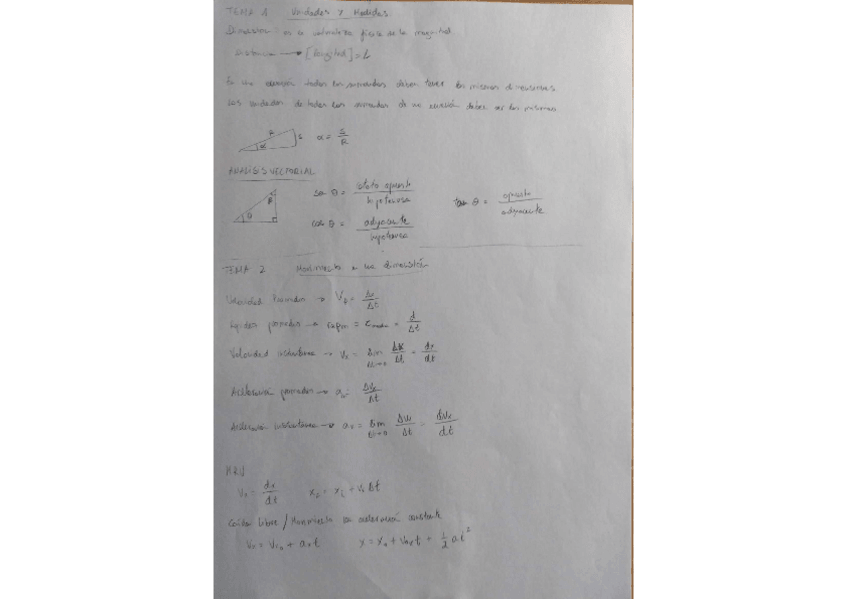 TEMA 1 Unidades y Medidas
Dimensión es la naturaleza física de la magnitud
distancia → [longitud] = L
En una ecuación todos los sumandos deben tener las mismas dimensiones
Las unidades de todos los sumandos de una ecuación deben ser las mismas
R S α α = S/R
ANALISIS VECTORIAL
sen θ = cateto opuesto / hipotenusa
tan θ = opuesto / adyacente
cos θ = adyacente / hipotenusa
TEMA 2 Movimiento en una dimensión
Velocidad Promedio → Vx = Δx/Δt
Rapidez promedio → = d/Δt
Velocidad instantánea → Vx = lim Δt→0 Δx/Δt = dx/dt
Aceleración promedio → ax = ΔVx/Δt
Aceleración instantánea → ax = lim Δt→0 ΔVx/Δt = dVx/dt
MRU
Vx = dx/dt xf = xi + Vx Δt
Caída libre / Movimiento aceleración constante
Vx = Vx0 + ax t x = x0 + Vx0 t + 1/2 a t²